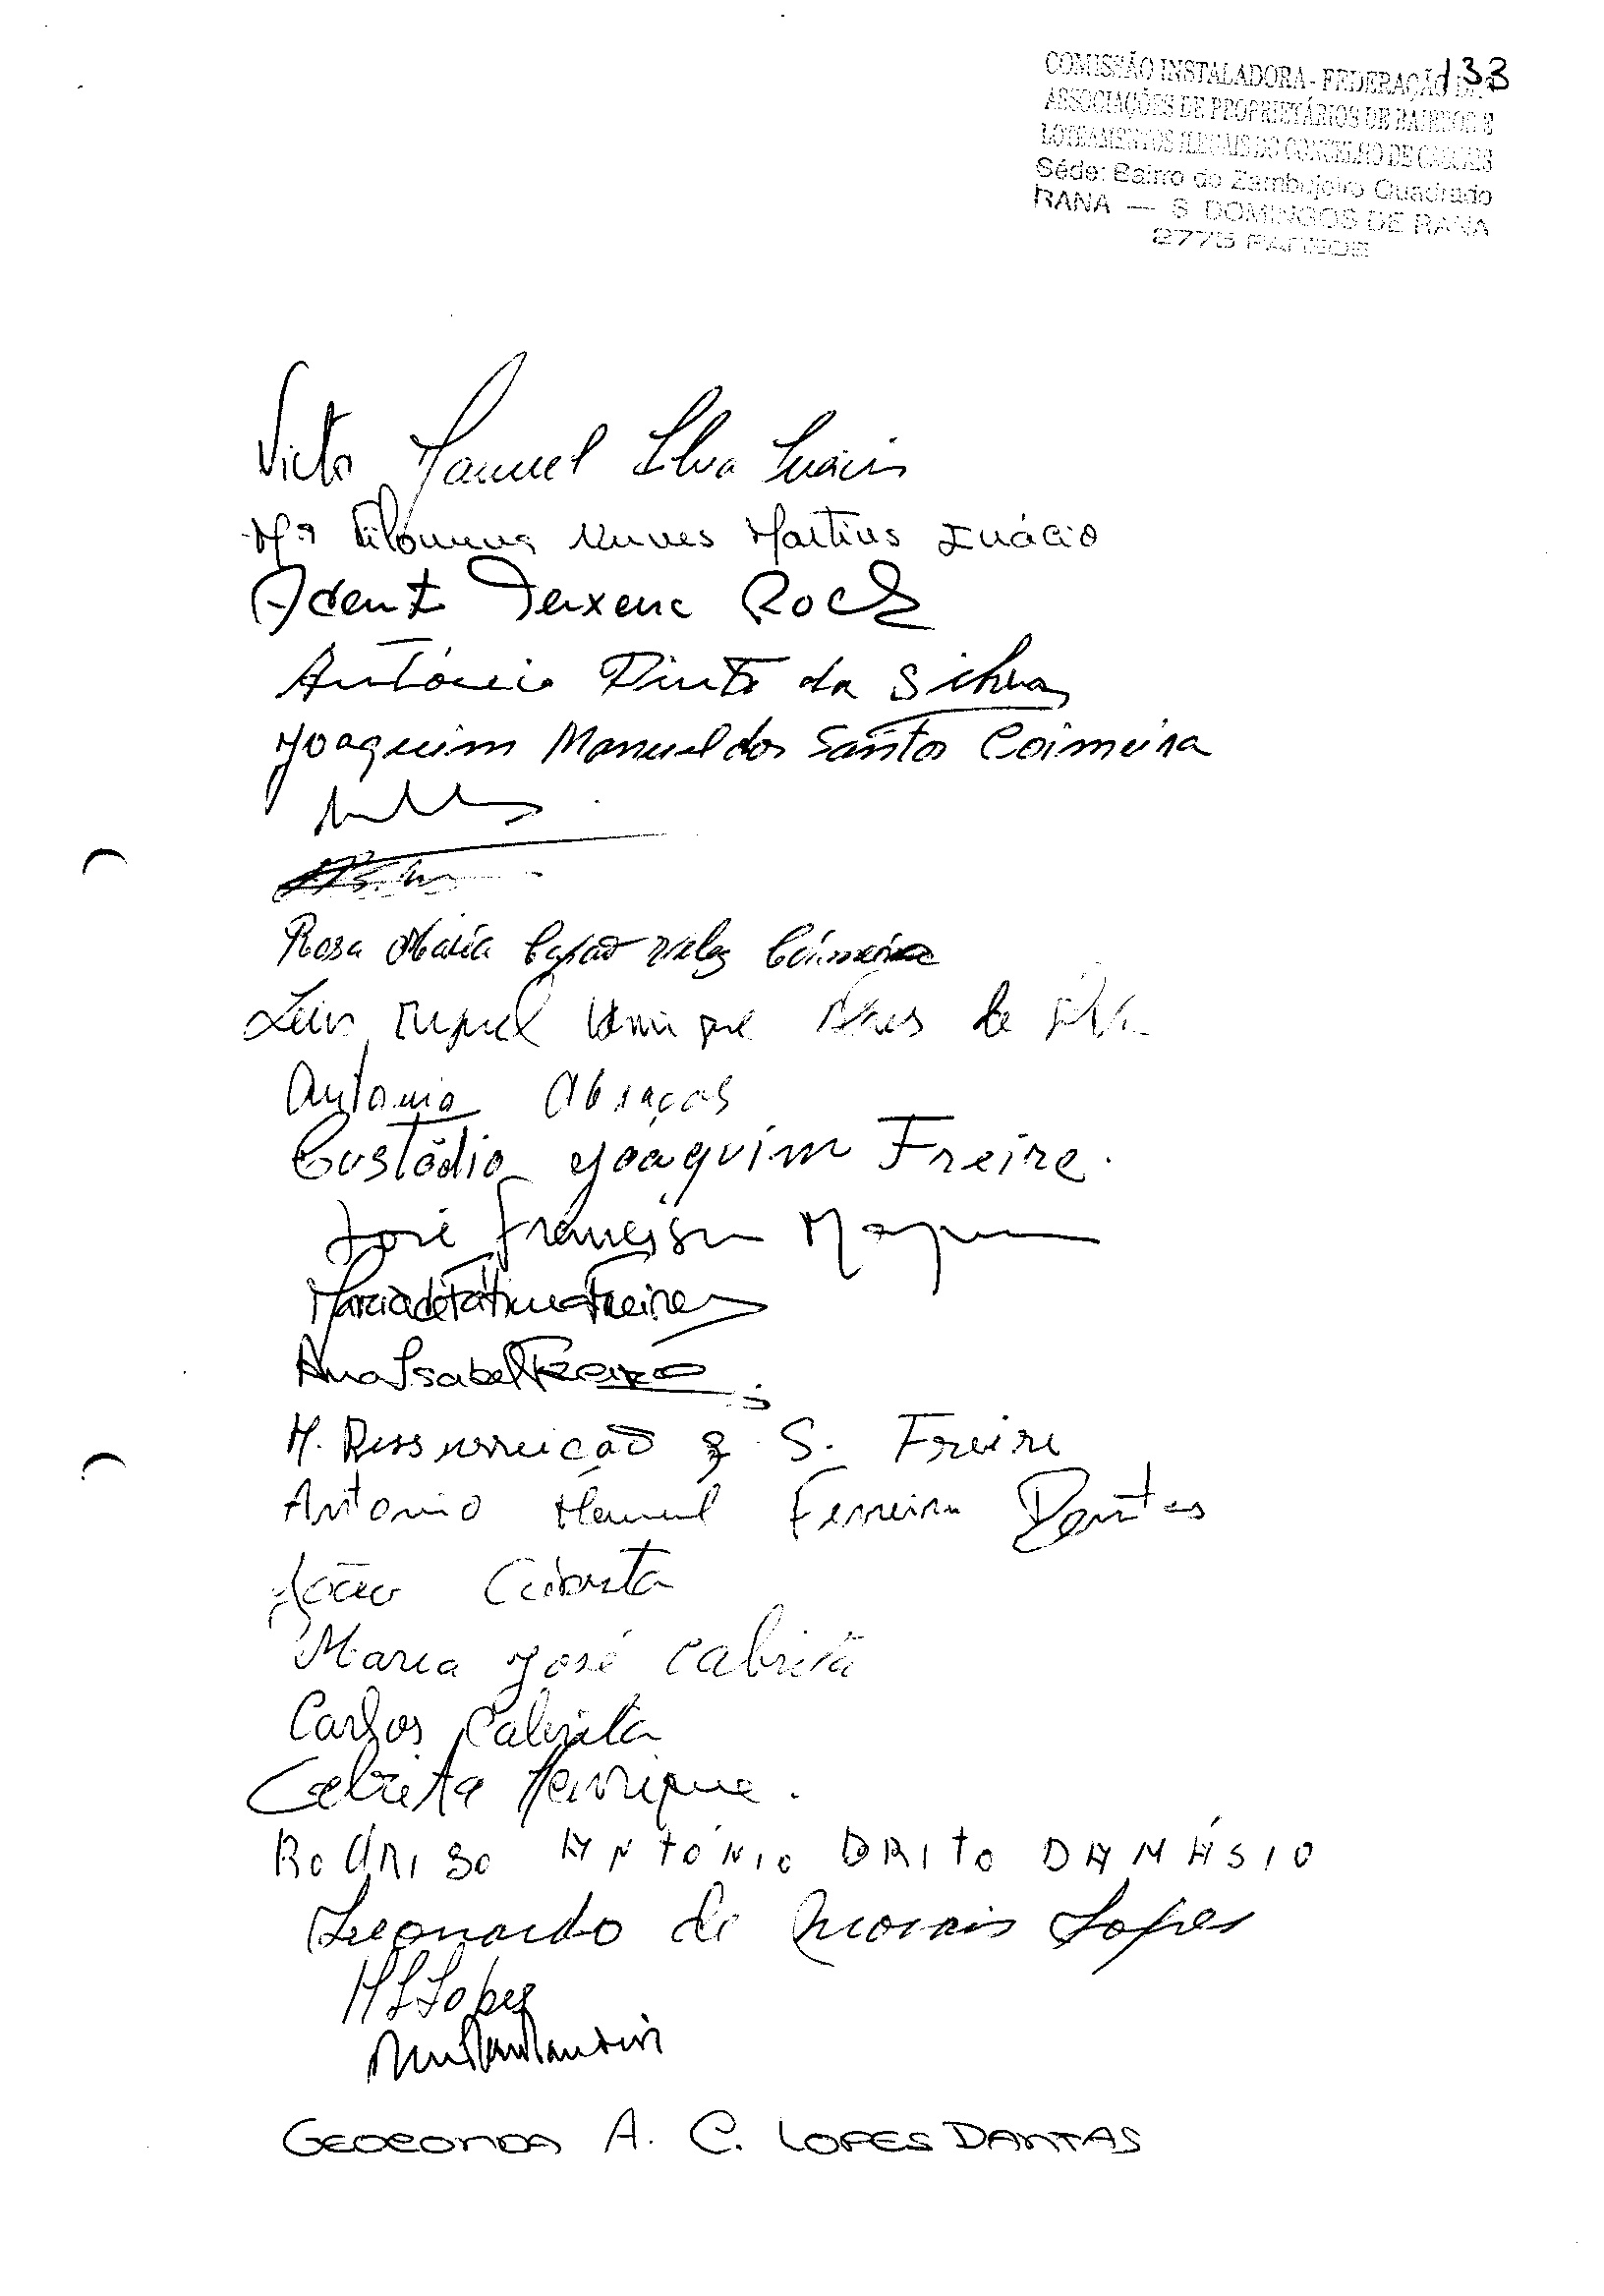 133
COMISSÃO INSTALADORA - FEDERAÇÃO DE
ASSOCIAÇÕES DE PROPRIETÁRIOS DE BAIRROS E
LOTEAMENTOS ILEGAIS DO CONCELHO DE CASCAIS
Séde: Bairro do Zambujeiro Quadrado
RANA — S DOMINGOS DE RANA
2775 PAREDE
Victor Manuel Silva
Mª Filomena Nunes Martins Inácio
Teixeira Rocha
António Pinto da Silva
Joaquim Manuel dos Santos Coimeira
Rosa Maria Velez Coimeira
Luis Miguel Henrique da Silva
Antonio Abraços
Custódio Joaquim Freire.
José Francisco
Maria de Fátima Freire
Ana Isabel Freire
M. Ressurreicão S. Freire
Antonio Manuel Ferreira Dantas
João Cabrita
Maria José Cabrita
Carlos Cabrita
Cabrita Henrique.
RODRIGO ANTÓNIO BRITO DAMÁSIO
Leonardo de Morais Lopes
M L Lopes
GEOCONDA A. C. LOPES DANTAS